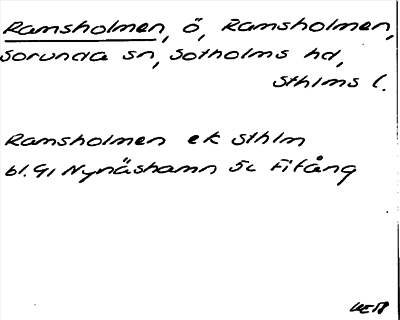 Ramsholmen, ö, Ramsholmen,
Sorunda sn, Sotholms hd,
Sthlms l.
Ramsholmen ek Sthlm
bl. 91 Nynäshamn 5c Fifång